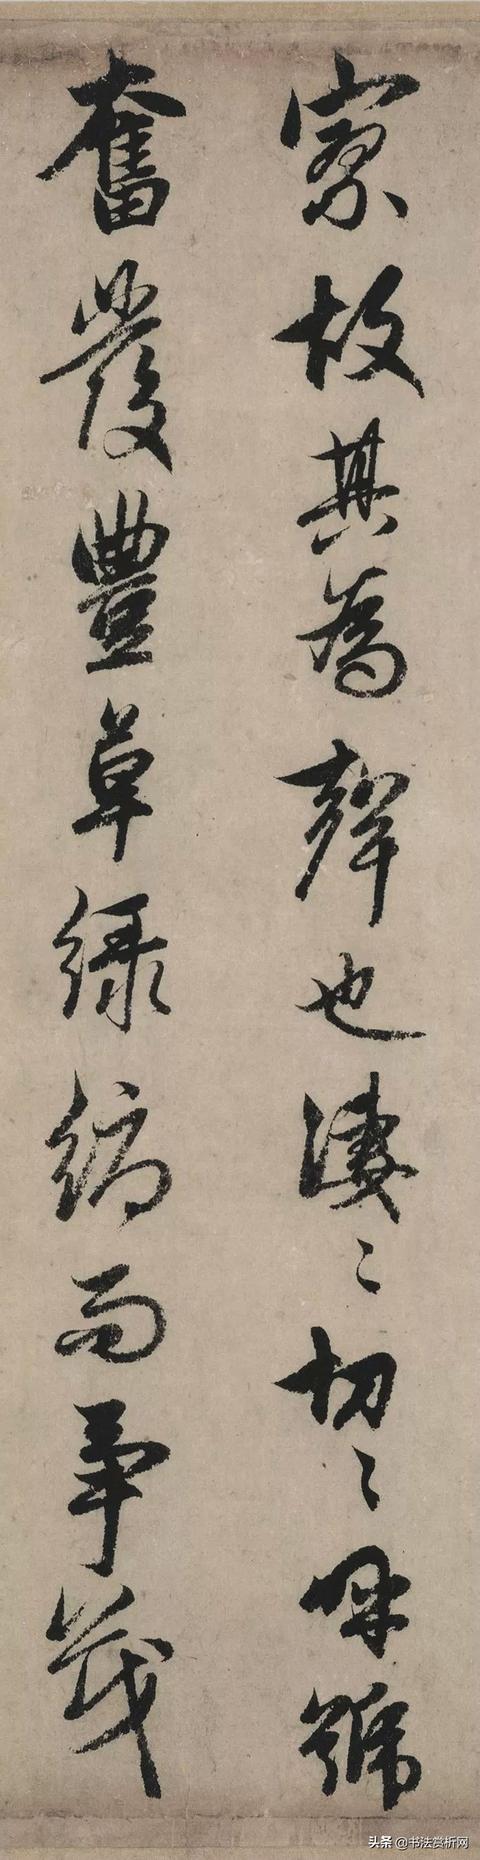 寥故其為聲也淒〻切〻呼號
奮發豐草綠縟而爭茂
头条 @书法赏析网